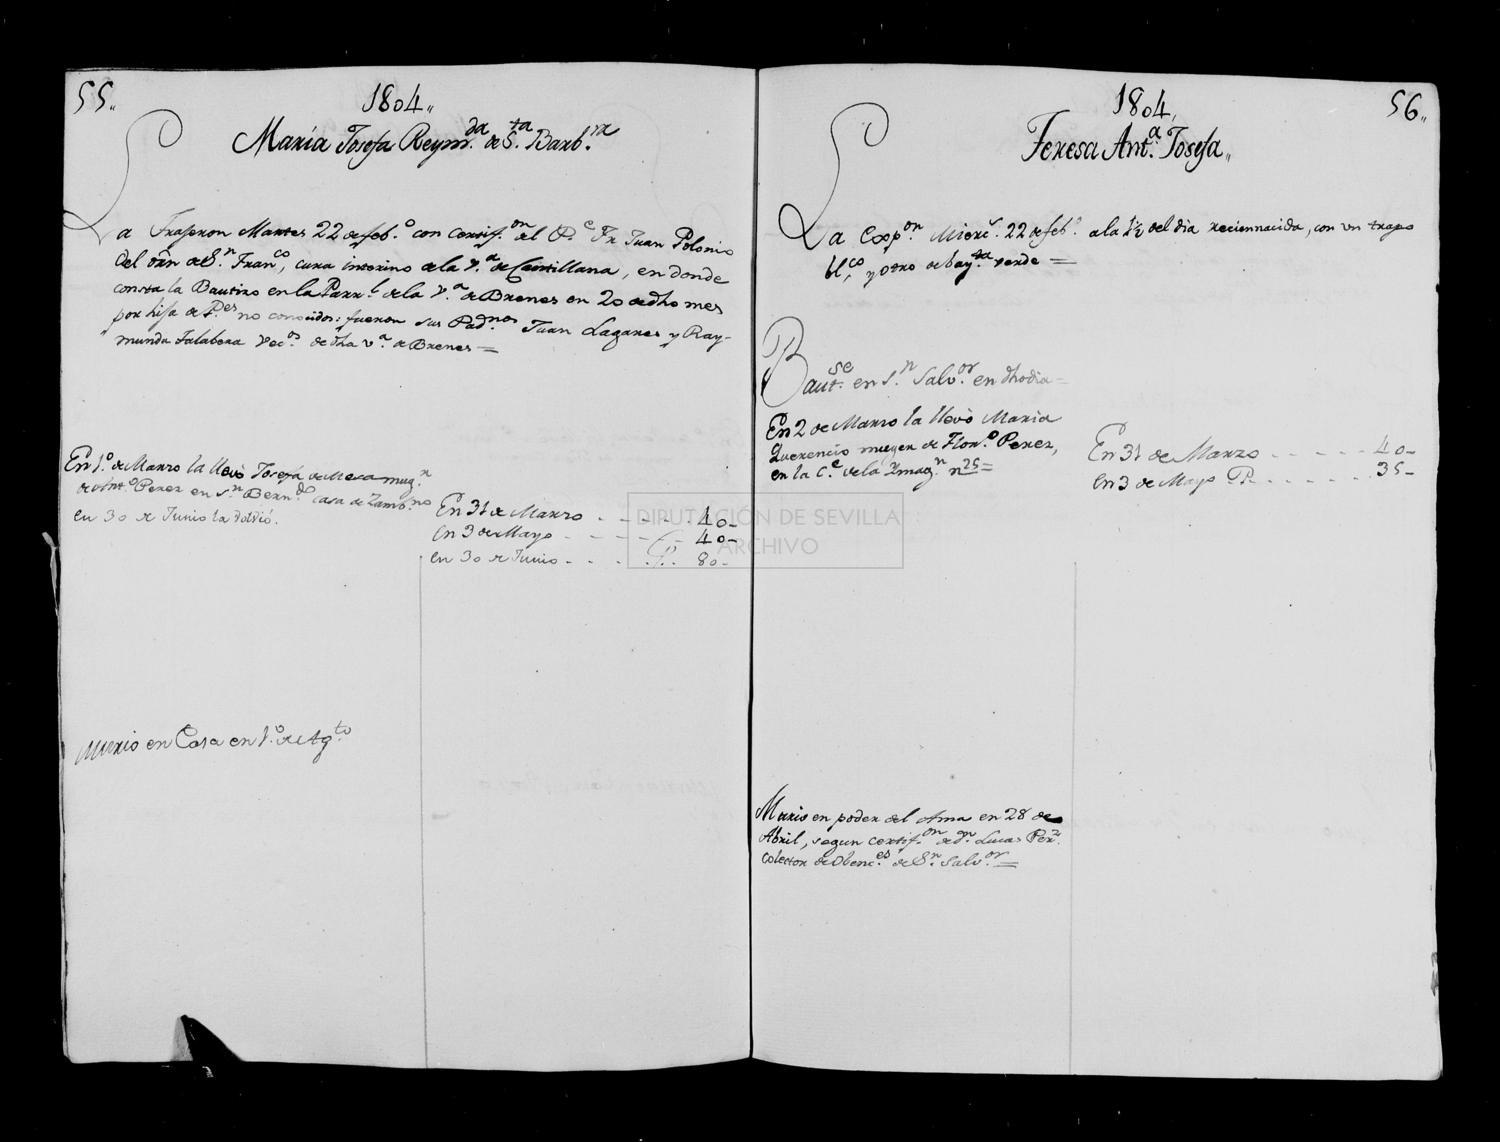 55,,
1804,,
María Josefa Reym.da de S.ta Barb.ra
La Trageron Martes 22 de feb.o con certif.on del P.e Fr. Juan Polonio
del orñ de S.n Fran.co, cura interino de la V.a de Cantillana, en donde
consta la Bautizo en la Parr.l de la V.a de Brenes en 20 de dho mes
por hija de P.es no conocidos: fueron sus Pad.nos Juan Lagares y Ray-
munda Talabera vec.os de dha v.a de Brenes =
En 1.o de Marzo la llevó Josefa de Mesa mug.r
de Ant.o Perez en S.n Bern.do casa de Zamb.no
en 30 de Junio la volvió.
En 31 de Marzo - - - - 40-
en 3 de Mayo - - - - 40-
en 30 de Junio - - - - 80-
Murio en Casa en 1.o de Ag.to
1804,
56,,
Teresa Ant.a Josefa,,
La Exp.on Mierc.s 22 de feb.o a la 1½ del dia reciennacida, con un trapo
bl.co y otro de bay.ta verde =
Baut.se en S.n Salv.or en dho dia =
En 2 de Marzo la llevó Maria
Querencio muger de Flor.o Perez,
en la C.e de la Ymag.n n.25=
En 31 de Marzo - - - - - 40-
en 3 de Mayo P. - - - - - 35-
Murio en poder del Ama en 28 de
Abril, segun certif.on de d.n Lucas Per.z
colector de Obenc.es de S.n Salv.or =
DIPUTACIÓN DE SEVILLA
ARCHIVO